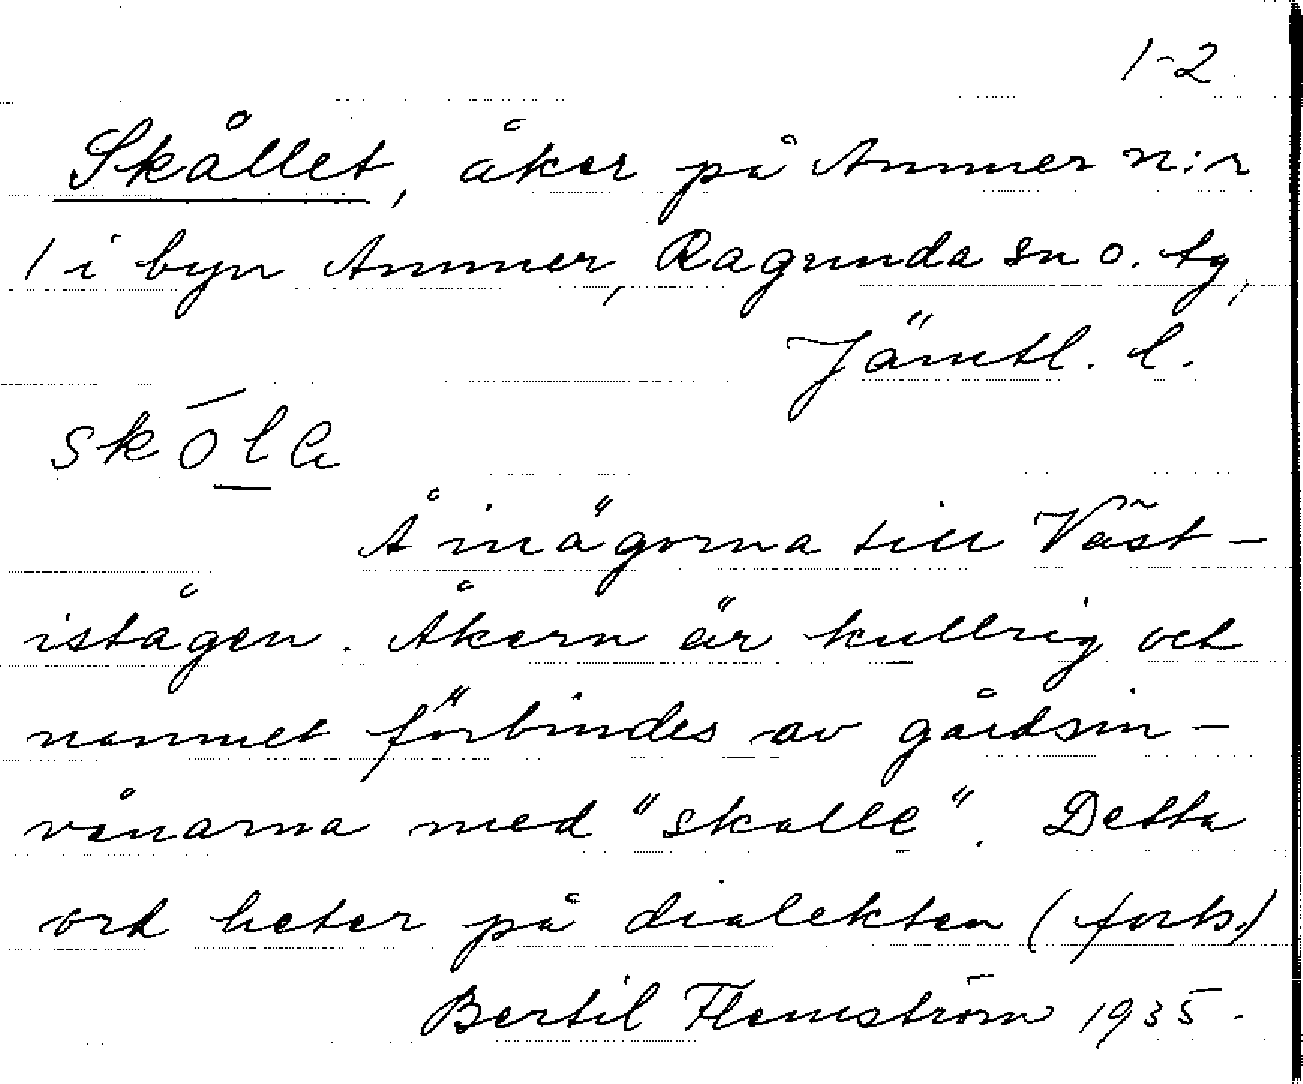 1-2
Skållet, åker på Ammer n:r
1 i byn Ammer, Ragunda sn o. tg,
Jämtl. l.
skóla
Å inägorna till Väst-
istågen. Åkern är kullrig och
namnet förbindes av gårdsin-
vånarna med "skalle". Detta
ord heter på dialekten (forts.)
Bertil Flemström 1935.